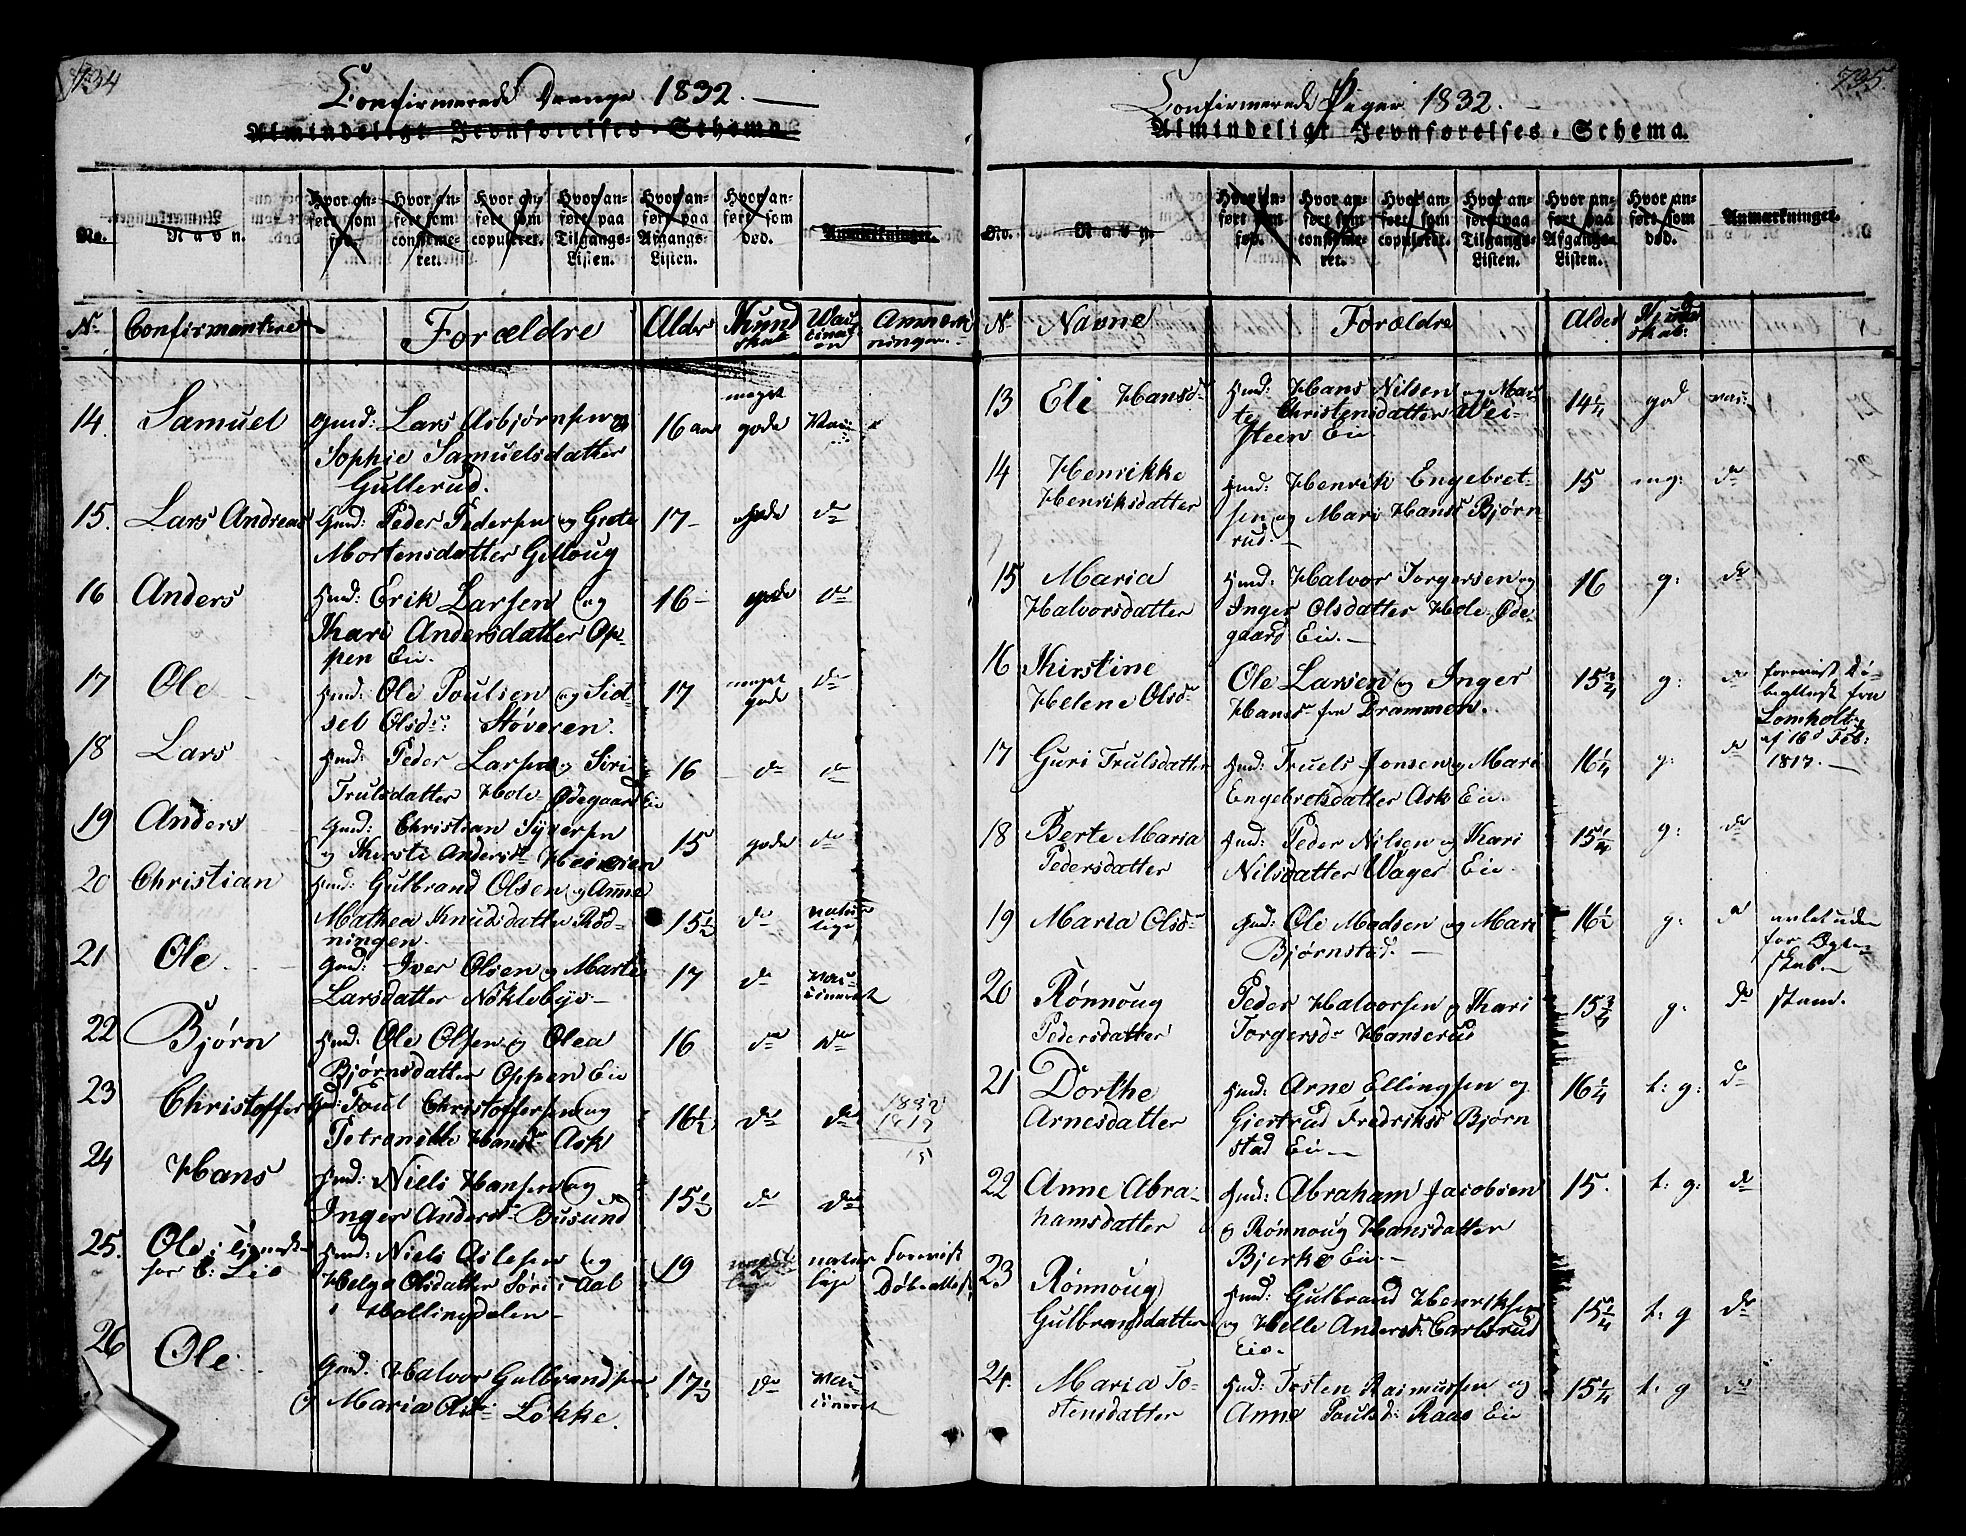 734
Confirmerede Drenge 1832.
Almindeligt Jevnførelses-Schema.
No.
Navn.
Hvor anført som fød.
Hvor anført som confirmeret.
Hvor anført som copuleret.
Hvor anført paa Tilgangs-Listen.
Hvor anført paa Afgangs-Listen.
Hvor anført som død.
Anmærkninger.
No Confirmantere Forældre Alder Kundskab Vaccination Anmærkninger.
14. Samuel Gmd: Lars Asbjørnsen og 16 aar meget gode Vac:
Sophie Samuelsdatter
Gullerud.
15. Lars Andreas Gmd: Peder Pedersen og Grete 17- gode do
Mortensdatter Gilloug
16 Anders Hmd: Erik Larsen og 16- gode do
Kari Andersdatter Op-
pen Eie.
17 Ole Hmd: Ole Poulsen og Sid- 17 meget gode do
sel Olsdr: Støveren.
18 Lars Hmd: Peder Larsen og Siri 16 do do
Trulsdatter Hole-Ødegaard Eie
19 Anders Gmd: Christian Syversen 15 gode do
og Kirsti Andersdr
20 Christian Hmd: Gulbrand Olsen og Anne
Mathea Knudsdatter Rød- 15½ do naturlige
ningen.
21 Ole. Gmd: Iver Olsen og Marte 17 do vaccineret
Larsdatter Nøklebye-
22 Bjørn Hmd: Ole Olsen og Olea 16 do do
Bjørnsdatter Oppen Eie
23 Christoffer Gmd: Poul Christoffersen og 16½ do do 1832
Petronille Hansdr Ask 1817
15
24 Hans Hmd: Niels Hansen og 15½ do do
Inger Andersdr Busund
25. Ole Hmd: Niels og 19 naturlige Forevist
Helge Olsdatter i Aal Døbeattest
i Hallingdalen-
26 Ole Gmd: Halvor Gulbrandsen 17½ do vaccineret
og Maria Løkke.
735.
Confirmerede Piger 1832.
Almindeligt Jevnførelses-Schema.
No.
Navn.
Hvor anført som fød.
Hvor anført som confirmeret.
Hvor anført som copuleret.
Hvor anført paa Tilgangs-Listen.
Hvor anført paa Afgangs-Listen.
Hvor anført som død.
Anmærkninger.
No Navne Forældre Alder Kundskab:
13 Eli Hansdr Hmd: Hans Nilsen og Mar- 14¼ god vac:
te Christensdatter Vei-
steen Eie
14 Henrikke Hmd: Henrik Engebret- 15 mg: do
Henriksdatter sen og Mari Hansd Bjørn
rud.-
15 Maria Hmd: Halvor Torgersen og 16 g: do
Halvorsdatter Inger Olsdatter Hole-Øde-
gaard Eie.-
16 Kirstine Ole Larsen og Inger 15¾ g: do forevist Dø-
Helene Olsdr Hansdr fra Drammen. beattest fra
Lomholt
af 16d Feb:
1817.-
17 Guri Trulsdatter Hmd: Truels Jonsen og Mari 16¼ g: do
Engebretsdatter Ask Eie.
18 Berte Maria Hmd: Peder Nilsen og Kari 15¼ g: do
Pedersdatter Nilsdatter Wager Eie.
19 Maria Olsdr Gmd: Ole Madsen og Mari 16½ g: do avlet uden
Bjørnstad.- for Egte-
skab.-
20 Rønnoug Peder Halvorsen og Kari 15¾ g: do
Pedersdatter Torgersdr Hanserud
21 Dorthe Hmd: Arne Ellingsen og 16¼ t: g: do
Arnesdatter Giertrud Fredriksd Bjørn
stad Eie.-
22 Anne Abra- Hmd: Abraham Jacobsen 15. t: g: do
hamsdatter og Rønnoug Hansdatter
Bjerke Eie.-
23 Rønnoug Hmd: Gulbrand Henriksen 15¼ t: g do
Gulbrandsdatter og Helle Andersd: Carlsrud
Eie.
24. Maria To- Hmd: Tosten Rasmussen og 15¼ t: g do
stensdatter Anne Poulsd: Raas Eie